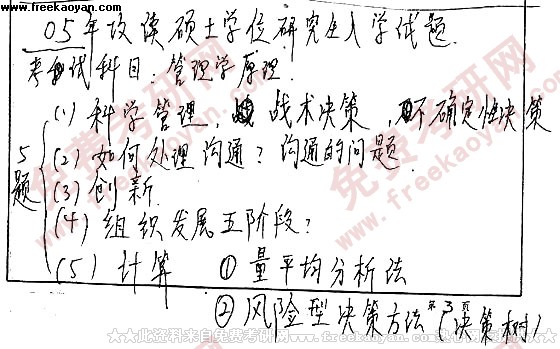 www.freekaoyan.com
05年攻读硕士学位研究生入学试题.
考试科目:管理学原理.
5题
(1) 科学管理, 战术决策, 不确定性决策
(2) 如何处理沟通?沟通的问题.
(3) 创新.
(4) 组织发展五阶段?
(5) 计算 ①量平均分析法
②风险型决策方法 决策树
免费考研网
www.freekaoyan.com
★此资料来自免费考研网
第3页